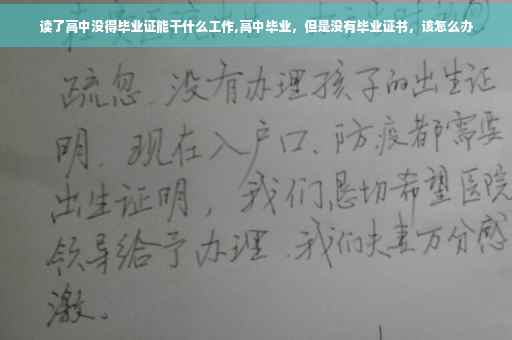 读了高中没得毕业证能干什么工作,高中毕业，但是没有毕业证书，该怎么办
疏忽、没有办理孩子的出生证
明、现在入户口、防疫都需要
出生证明，我们恳切希望医院
领导给予办理、我们夫妻万分感
激。